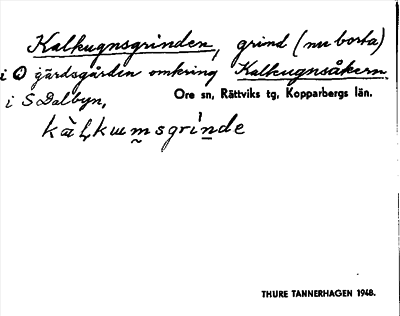 Kalkugnsgrinden, grind (nu borta)
i gärdsgården omkring Kalkugnsåkern
i SDalbyn,
Ore sn, Rättviks tg, Kopparbergs län.
THURE TANNERHAGEN 1948.